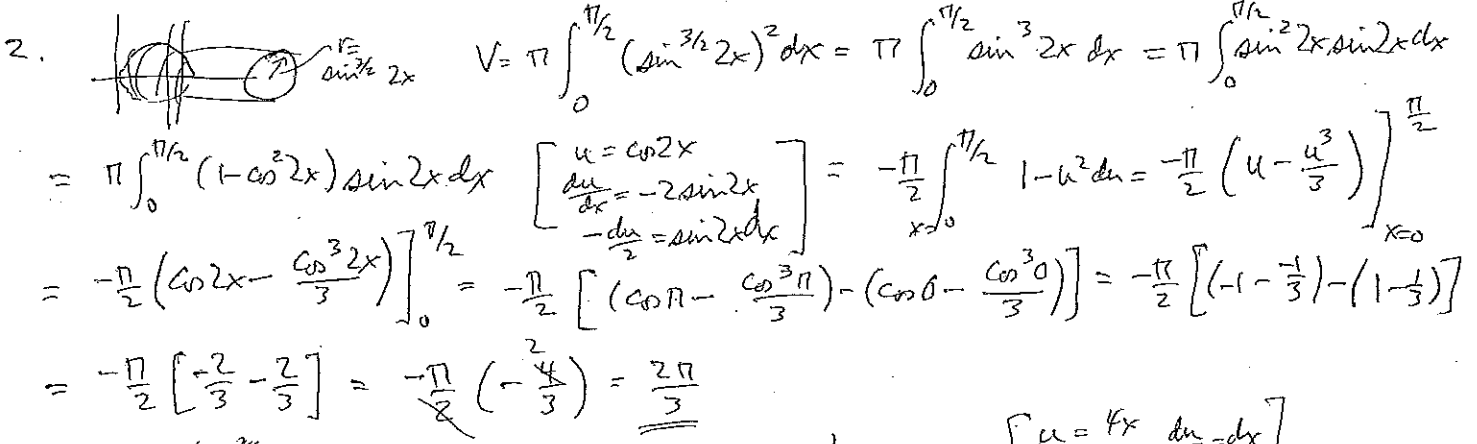 2. r= sin^{3/2} 2x V= π ∫_0^{π/2} (sin^{3/2} 2x)^2 dx = π ∫_0^{π/2} sin^3 2x dx = π ∫_0^{π/2} sin^2 2x sin2x dx
= π ∫_0^{π/2} (1-cos^2 2x) sin2x dx [ u = cos2x du/dx = -2sin2x -du/2 = sin2x dx ] = -π/2 ∫_{x=0}^{π/2} 1-u^2 du = -π/2 (u - u^3/3) ]_{x=0}^{π/2}
= -π/2 (cos2x - cos^3 2x/3) ]_0^{π/2} = -π/2 [ (cosπ - cos^3 π/3) - (cos0 - cos^3 0/3) ] = -π/2 [ (-1 - -1/3) - (1 - 1/3) ]
= -π/2 [ -2/3 - 2/3 ] = -π/2 (- 4/3) 2 = 2π/3
[ u = 4x du = dx ]